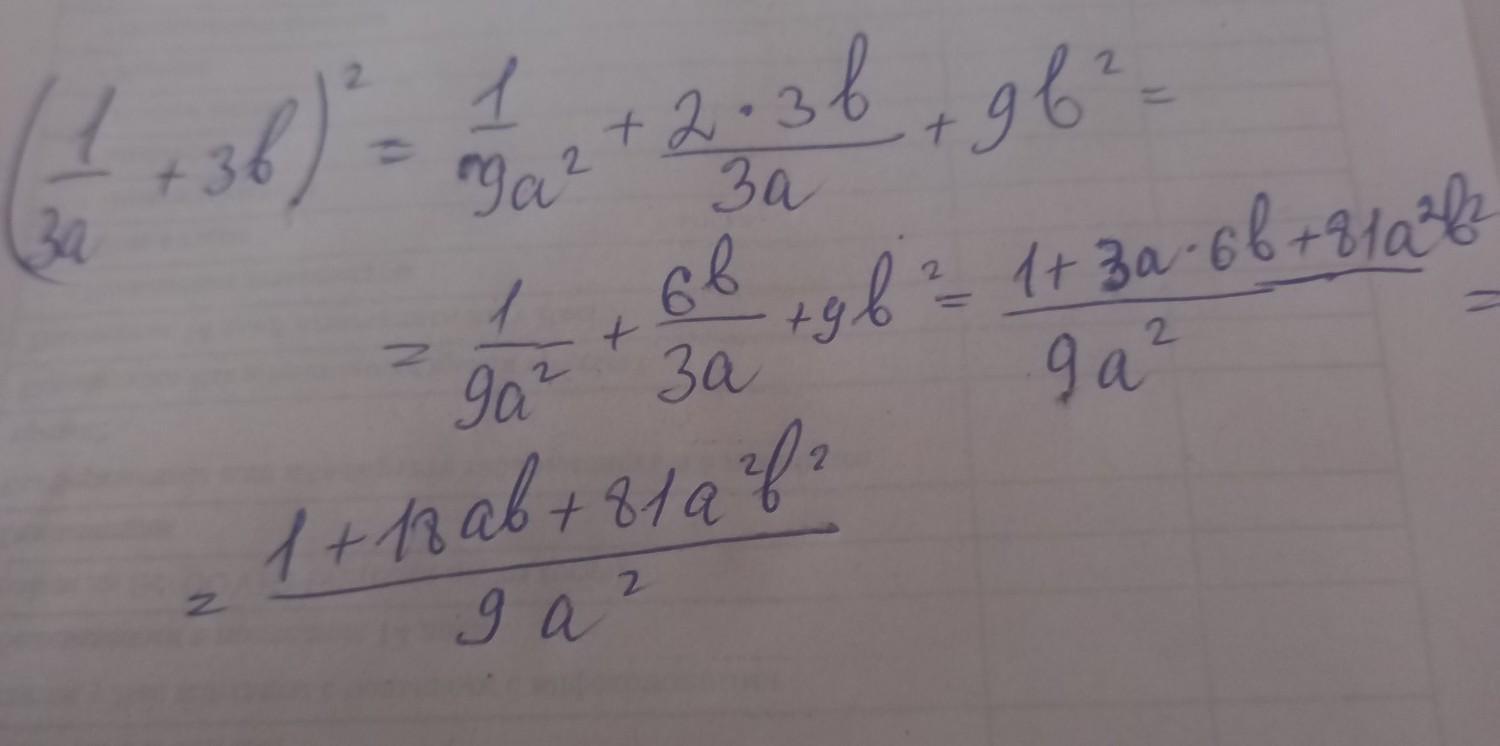 (1/3a + 3в)² = 1/9a² + 2·3в/3a + 9в² =
= 1/9a² + 6в/3a + 9в² = 1+3a·6в+81a²в²/9a² =
= 1+18aв+81a²в²/9a²